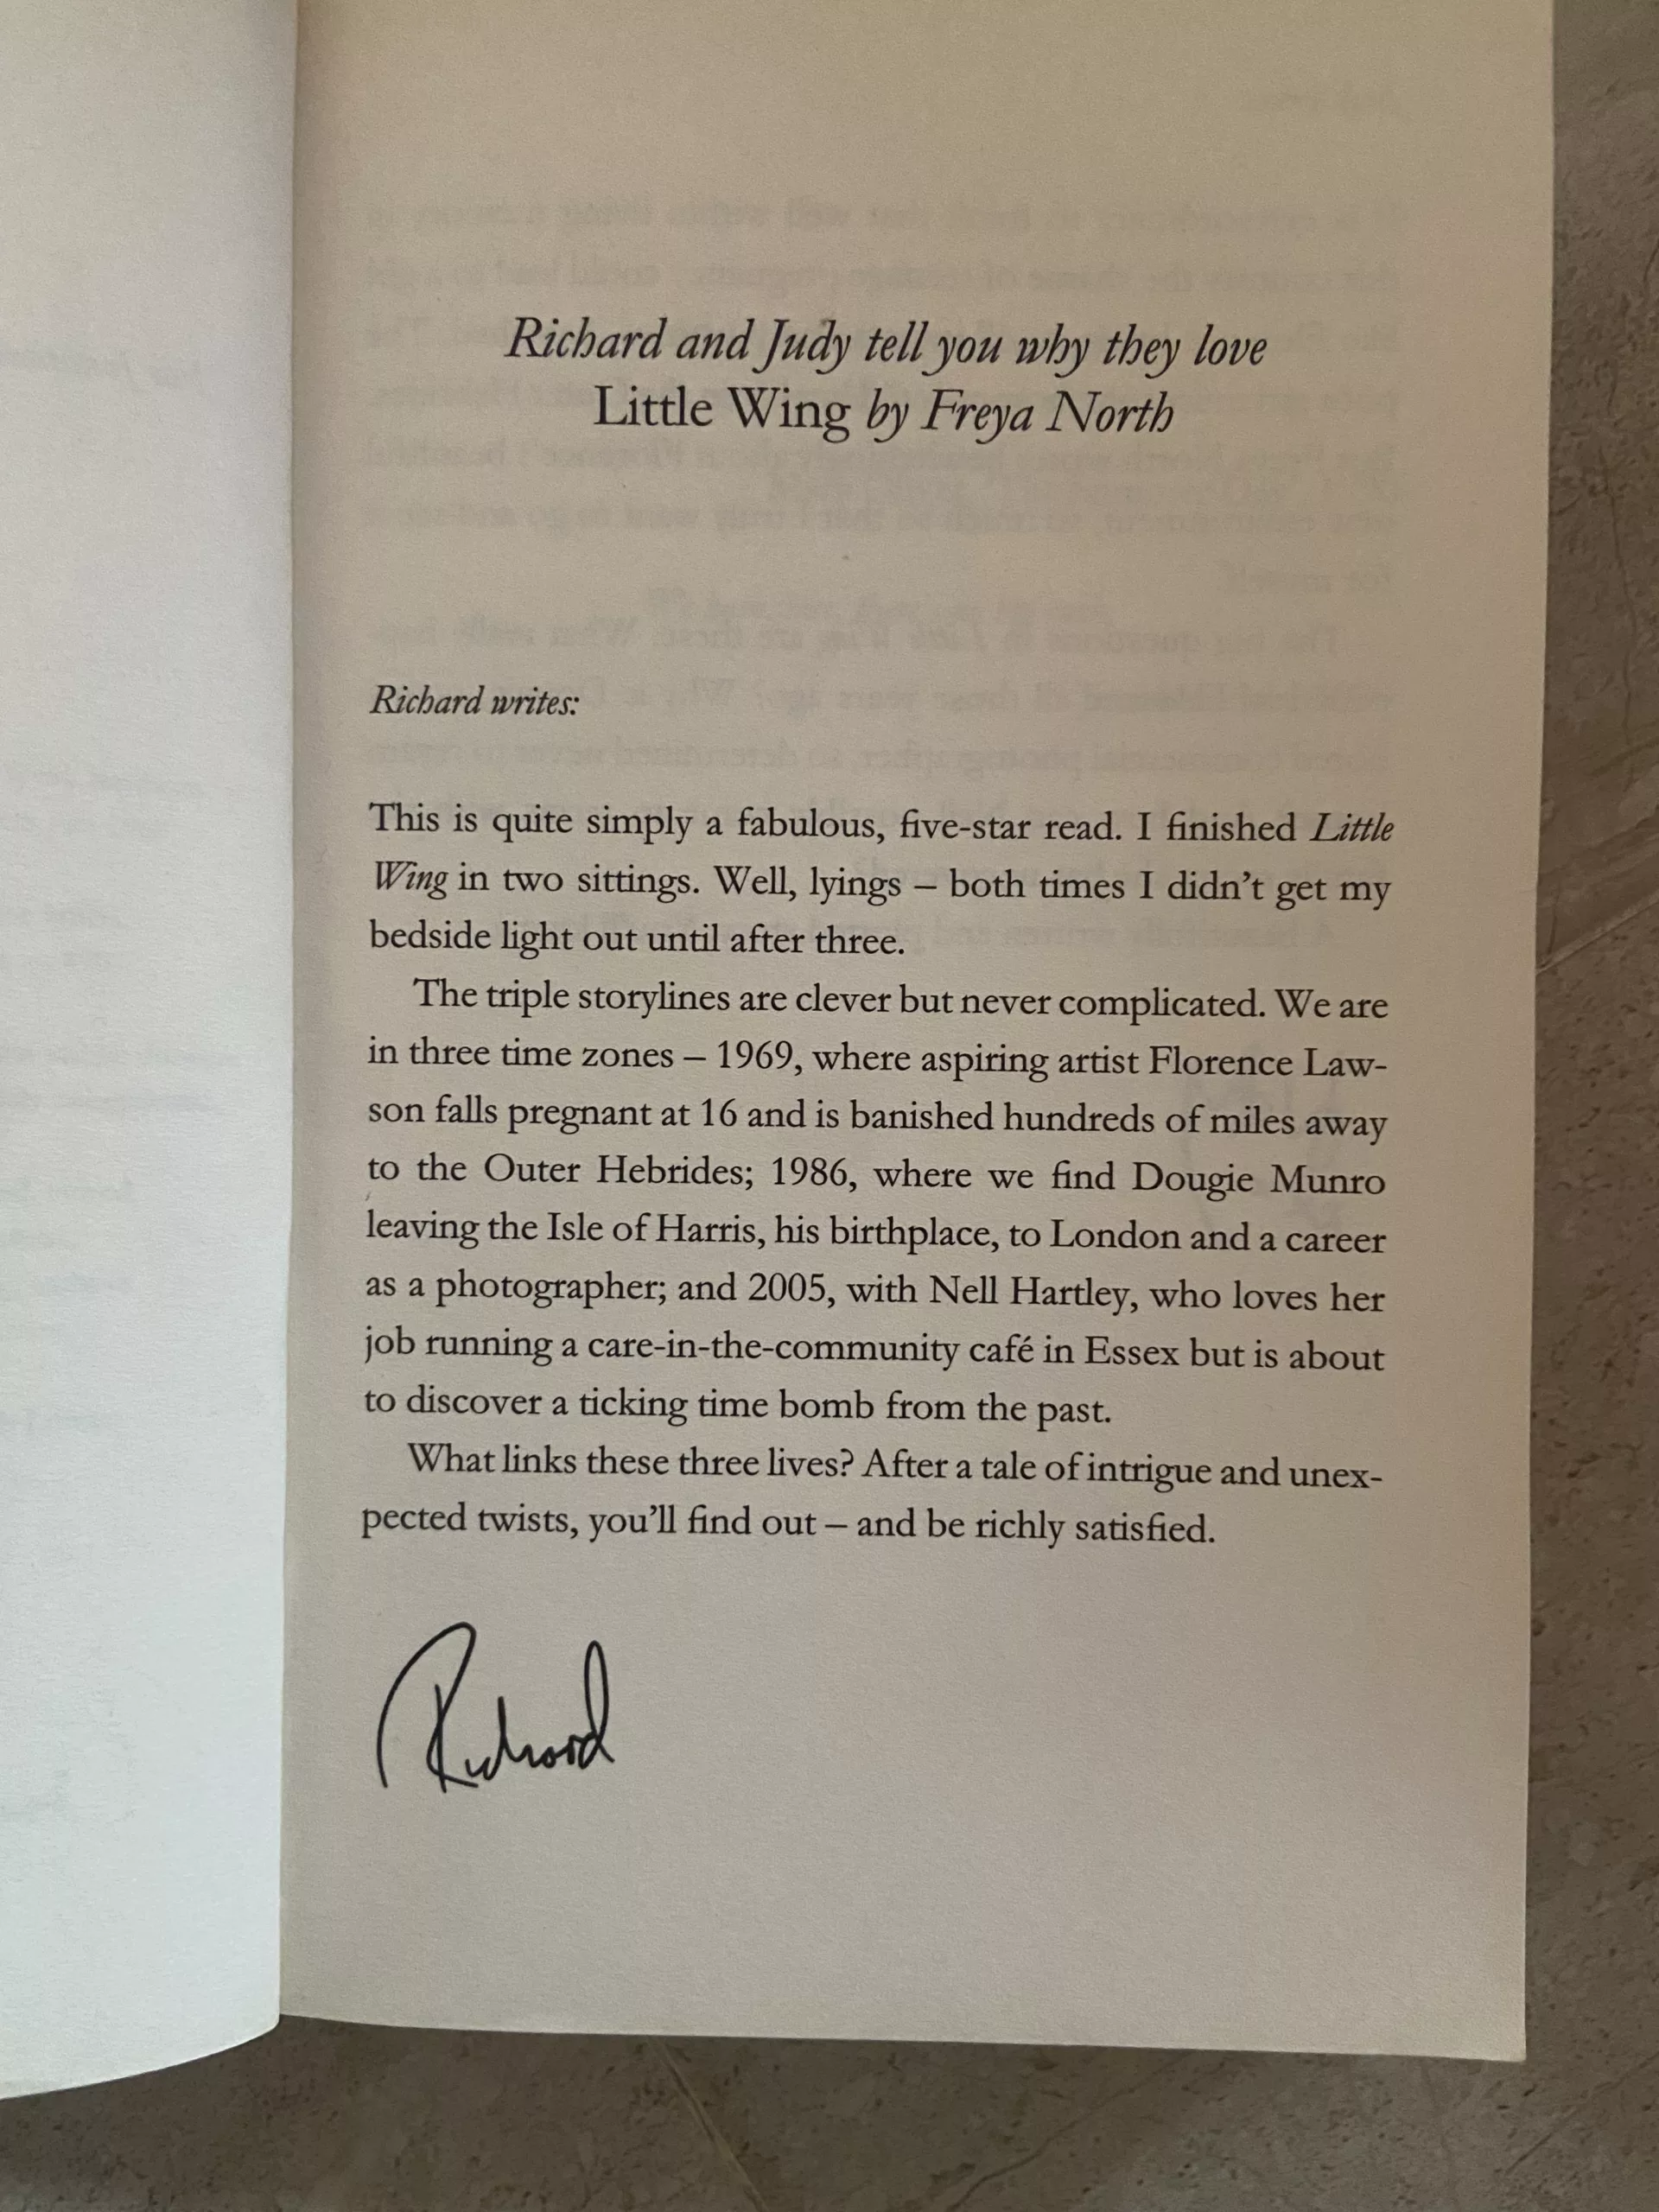 Richard and Judy tell you why they love
Little Wing by Freya North
Richard writes:
This is quite simply a fabulous, five-star read. I finished Little
Wing in two sittings. Well, lyings – both times I didn’t get my
bedside light out until after three.
The triple storylines are clever but never complicated. We are
in three time zones – 1969, where aspiring artist Florence Law-
son falls pregnant at 16 and is banished hundreds of miles away
to the Outer Hebrides; 1986, where we find Dougie Munro
leaving the Isle of Harris, his birthplace, to London and a career
as a photographer; and 2005, with Nell Hartley, who loves her
job running a care-in-the-community café in Essex but is about
to discover a ticking time bomb from the past.
What links these three lives? After a tale of intrigue and unex-
pected twists, you’ll find out – and be richly satisfied.
Richard